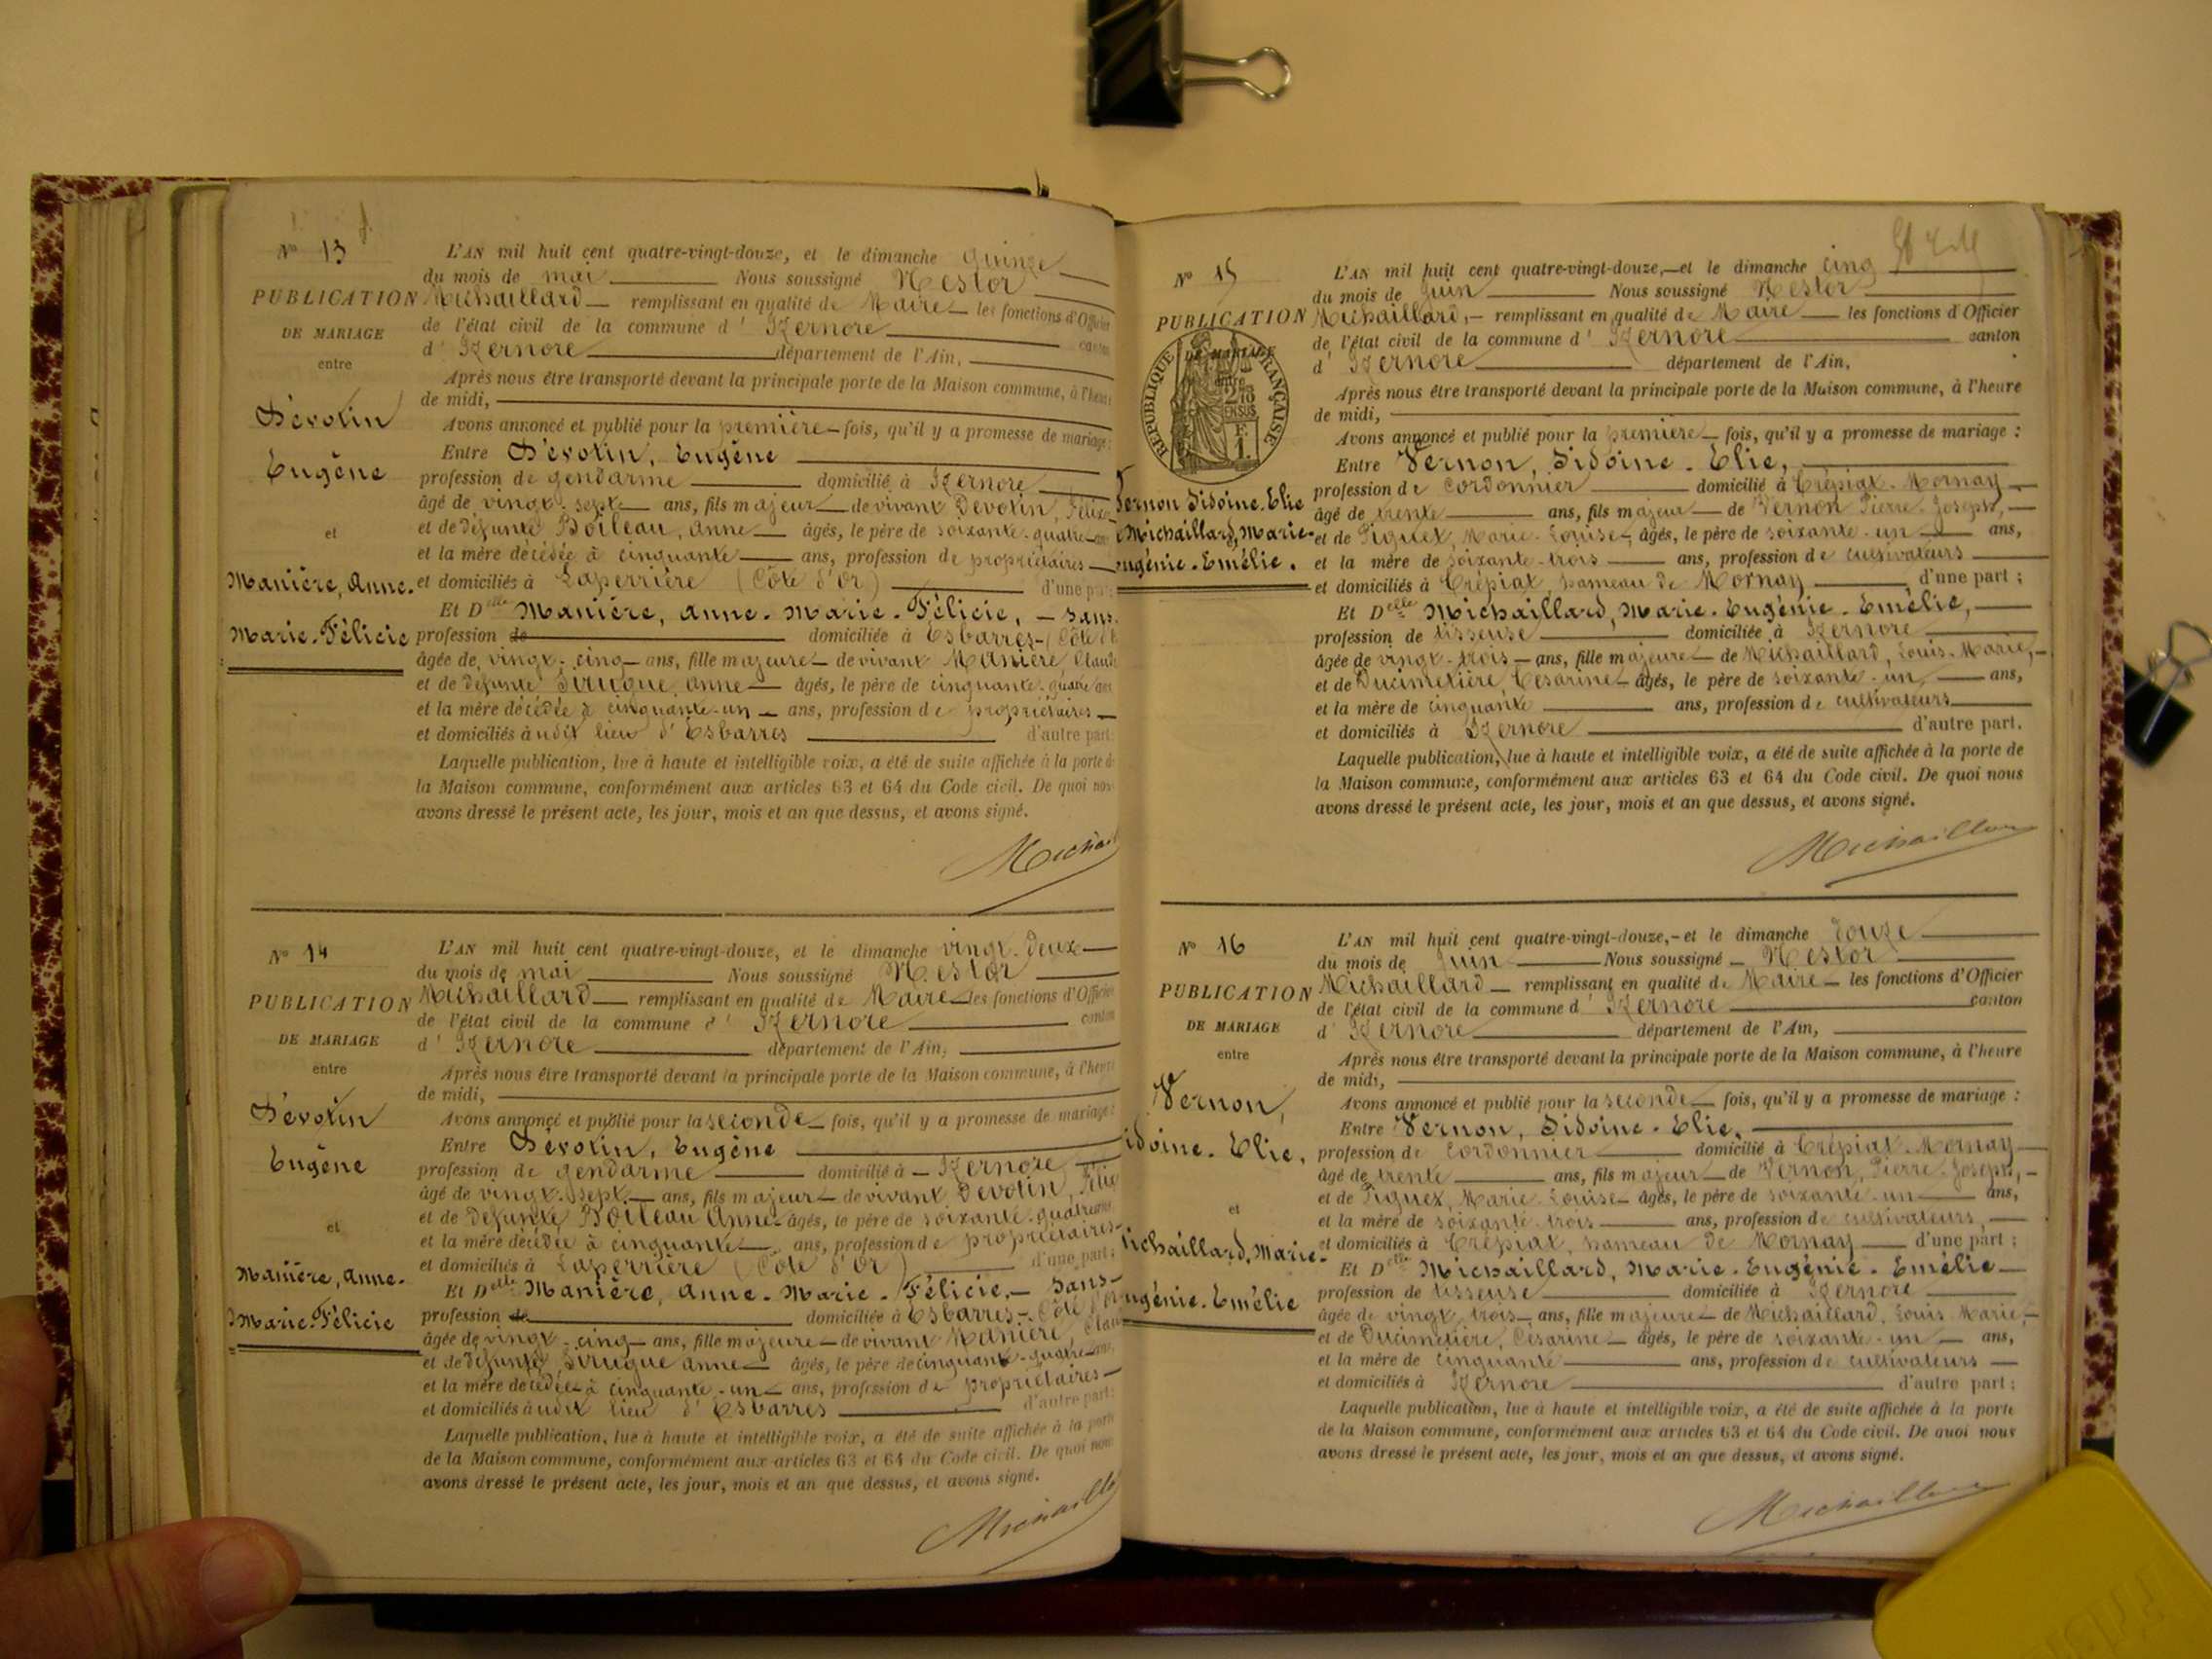 N° 13
PUBLICATION
DE MARIAGE
entre
Dévotin
Eugène
et
Manière, Anne.
Marie-Félicie
L'AN mil huit cent quatre-vingt-douze, et le dimanche quinze
du mois de mai Nous soussigné Nestor
Michaillard remplissant en qualité de Maire les fonctions d'Officier
de l'état civil de la commune d' Izernore canton
d' Izernore département de l'Ain,
Après nous être transporté devant la principale porte de la Maison commune, à l'heure
de midi,
Avons annoncé et publié pour la première fois, qu'il y a promesse de mariage :
Entre Dévotin, Eugène
profession de gendarme domicilié à Izernore
âgé de vingt-sept ans, fils majeur de vivant Dévotin, Félix
et de défunte Boileau, Anne âgés, le père de soixante-quatre ans
et la mère décédée à cinquante ans, profession de propriétaires
et domiciliés à Laperrière (Côte d'Or) d'une part
Et Delle Manière, Anne-Marie-Félicie, - sans
profession de domiciliée à Esbarres (Côte d'
âgée de vingt-cinq ans, fille majeure de vivant Manière Claude
et de défunte Sirugue Anne âgés, le père de cinquante-quatre ans
et la mère décédée à cinquante-un ans, profession de propriétaires
et domiciliés à udit lieu d'Esbarres d'autre part.
Laquelle publication, lue à haute et intelligible voix, a été de suite affichée à la porte de
la Maison commune, conformément aux articles 63 et 64 du Code civil. De quoi nous
avons dressé le présent acte, les jour, mois et an que dessus, et avons signé.
Michail
N° 14
PUBLICATION
DE MARIAGE
entre
Dévotin
Eugène
et
Manière, Anne.
Marie-Félicie
L'AN mil huit cent quatre-vingt-douze, et le dimanche vingt-deux
du mois de mai Nous soussigné Nestor
Michaillard remplissant en qualité de Maire les fonctions d'Officier
de l'état civil de la commune d' Izernore canton
d' Izernore département de l'Ain,
Après nous être transporté devant la principale porte de la Maison commune, à l'heure
de midi,
Avons annoncé et publié pour la seconde fois, qu'il y a promesse de mariage :
Entre Dévotin, Eugène
profession de gendarme domicilié à Izernore
âgé de vingt-sept ans, fils majeur de vivant Dévotin, Félix
et de défunte Boileau Anne âgés, le père de soixante-quatre ans
et la mère décédée à cinquante ans, profession de propriétaires
et domiciliés à Laperrière (Côte d'Or) d'une part :
Et Delle Manière, Anne-Marie-Félicie, - sans
profession de domiciliée à Esbarres, Côte d'Or
âgée de vingt-cinq ans, fille majeure de vivant Manière, Clau
et de défunte Sirugue Anne âgés, le père de cinquante-quatre ans,
et la mère décédée à cinquante-un ans, profession de propriétaires
et domiciliés à udit lieu d'Esbarres d'autre part :
Laquelle publication, lue à haute et intelligible voix, a été de suite affichée à la porte
de la Maison commune, conformément aux articles 63 et 64 du Code civil. De quoi nous
avons dressé le présent acte, les jour, mois et an que dessus, et avons signé.
Michailla
N° 15
PUBLICATION
DE MARIAGE
entre
RÉPUBLIQUE FRANÇAISE
Vernon Sidoine-Elie
Michaillard, Marie-
ugénie-Emélie.
L'AN mil huit cent quatre-vingt-douze, et le dimanche cinq
du mois de Juin Nous soussigné Nestor
Michaillard, remplissant en qualité de Maire les fonctions d'Officier
de l'état civil de la commune d' Izernore canton
d' Izernore département de l'Ain,
Après nous être transporté devant la principale porte de la Maison commune, à l'heure
de midi,
Avons annoncé et publié pour la première fois, qu'il y a promesse de mariage :
Entre Vernon, Sidoine-Elie,
profession de cordonnier domicilié à Crépiat-Mornay
âgé de trente ans, fils majeur de Vernon Pierre-Joseph,
et de Piquet, Marie-Louise, âgés, le père de soixante-un ans,
et la mère de soixante-trois ans, profession de cultivateurs
et domiciliés à Crépiat, hameau de Mornay d'une part ;
Et Delle Michaillard, Marie-Eugénie-Emélie,
profession de tisseuse domiciliée à Izernore
âgée de vingt-trois ans, fille majeure de Michaillard, Louis-Marie,
et de Ducimetière, Césarine âgés, le père de soixante-un, ans,
et la mère de cinquante ans, profession de cultivateurs
et domiciliés à Izernore d'autre part.
Laquelle publication, lue à haute et intelligible voix, a été de suite affichée à la porte de
la Maison commune, conformément aux articles 63 et 64 du Code civil. De quoi nous
avons dressé le présent acte, les jour, mois et an que dessus, et avons signé.
Michaillard
N° 16
PUBLICATION
DE MARIAGE
entre
Vernon,
idoine-Elie,
et
ichaillard, Marie-
ugénie-Emélie
L'AN mil huit cent quatre-vingt-douze, et le dimanche douze
du mois de Juin Nous soussigné Nestor
Michaillard remplissant en qualité de Maire les fonctions d'Officier
de l'état civil de la commune d' Izernore canton
d' Izernore département de l'Ain,
Après nous être transporté devant la principale porte de la Maison commune, à l'heure
de midi,
Avons annoncé et publié pour la seconde fois, qu'il y a promesse de mariage :
Entre Vernon, Sidoine-Elie,
profession de cordonnier domicilié à Crépiat-Mornay
âgé de trente ans, fils majeur de Vernon, Pierre-Joseph,
et de Piquet, Marie-Louise âgés, le père de soixante-un ans,
et la mère de soixante-trois ans, profession de cultivateurs,
et domiciliés à Crépiat, hameau de Mornay d'une part ;
Et Delle Michaillard, Marie-Eugénie-Emélie
profession de tisseuse domiciliée à Izernore
âgée de vingt-trois ans, fille majeure de Michaillard, Louis Marie,
et de Ducimetière, Césarine âgés, le père de soixante-un ans,
et la mère de cinquante ans, profession de cultivateurs
et domiciliés à Izernore d'autre part ;
Laquelle publication, lue à haute et intelligible voix, a été de suite affichée à la porte
de la Maison commune, conformément aux articles 63 et 64 du Code civil. De quoi nous
avons dressé le présent acte, les jour, mois et an que dessus, et avons signé.
Michaillard